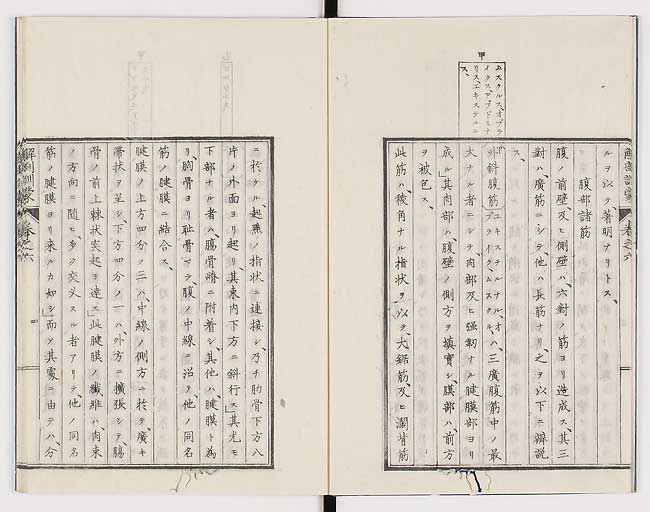 甲
ムスクルス、オブラ
イクス、アブドミナ
リス、エキステルニ
ス、
ルヲ以テ著明ナリトス、
腹部諸筋
腹ノ前壁及ヒ側壁ハ、六對ノ筋ヨリ造成ス、其三
對ハ、廣筋ニシテ他ハ長筋ナリ、之ヲ以下ニ辨説
ス、
外斜腹筋ハ、三廣腹筋中ノ最
大ナル者ニシテ、肉部及ヒ強靱ナル腱膜部ヨリ
成ル、其肉部ハ、腹壁ノ側方ヲ填實シ、膜部ハ前方
ヲ被包ス、
此筋ハ、稜角ナル指状ヲ以テ、大鋸筋、及ヒ濶背筋
解剖訓蒙 巻之六
ニ於ケル起点ノ指状ニ連接シ、乃チ肋骨下方八
片ノ外面ヨリ起リ、其束内下方ニ斜行ス、其尤モ
下部ナル者ハ、腸骨櫛ニ附着シ、其他ハ、腱膜ト為
リ、胸骨ヨリ耻骨マテ、腹ノ中線ニ沿テ、他ノ同名
筋ノ腱膜ニ結合ス、
腱膜ノ上方四分ノ三ハ、中線ノ側方ニ於テ廣キ
帯状ヲ呈シ、下方四分ノ一ハ、外方ニ擴張シテ腸
骨ノ前上棘状突起ヲ達ス、此腱膜ノ纖維ハ、肉束
ノ方向ニ随ヒ、多ク交叉スル者アリテ、他ノ同名
筋ノ腱膜ヨリ来ルカ如シ、而テ其處ニ由テハ、分
解剖訓蒙 巻之六